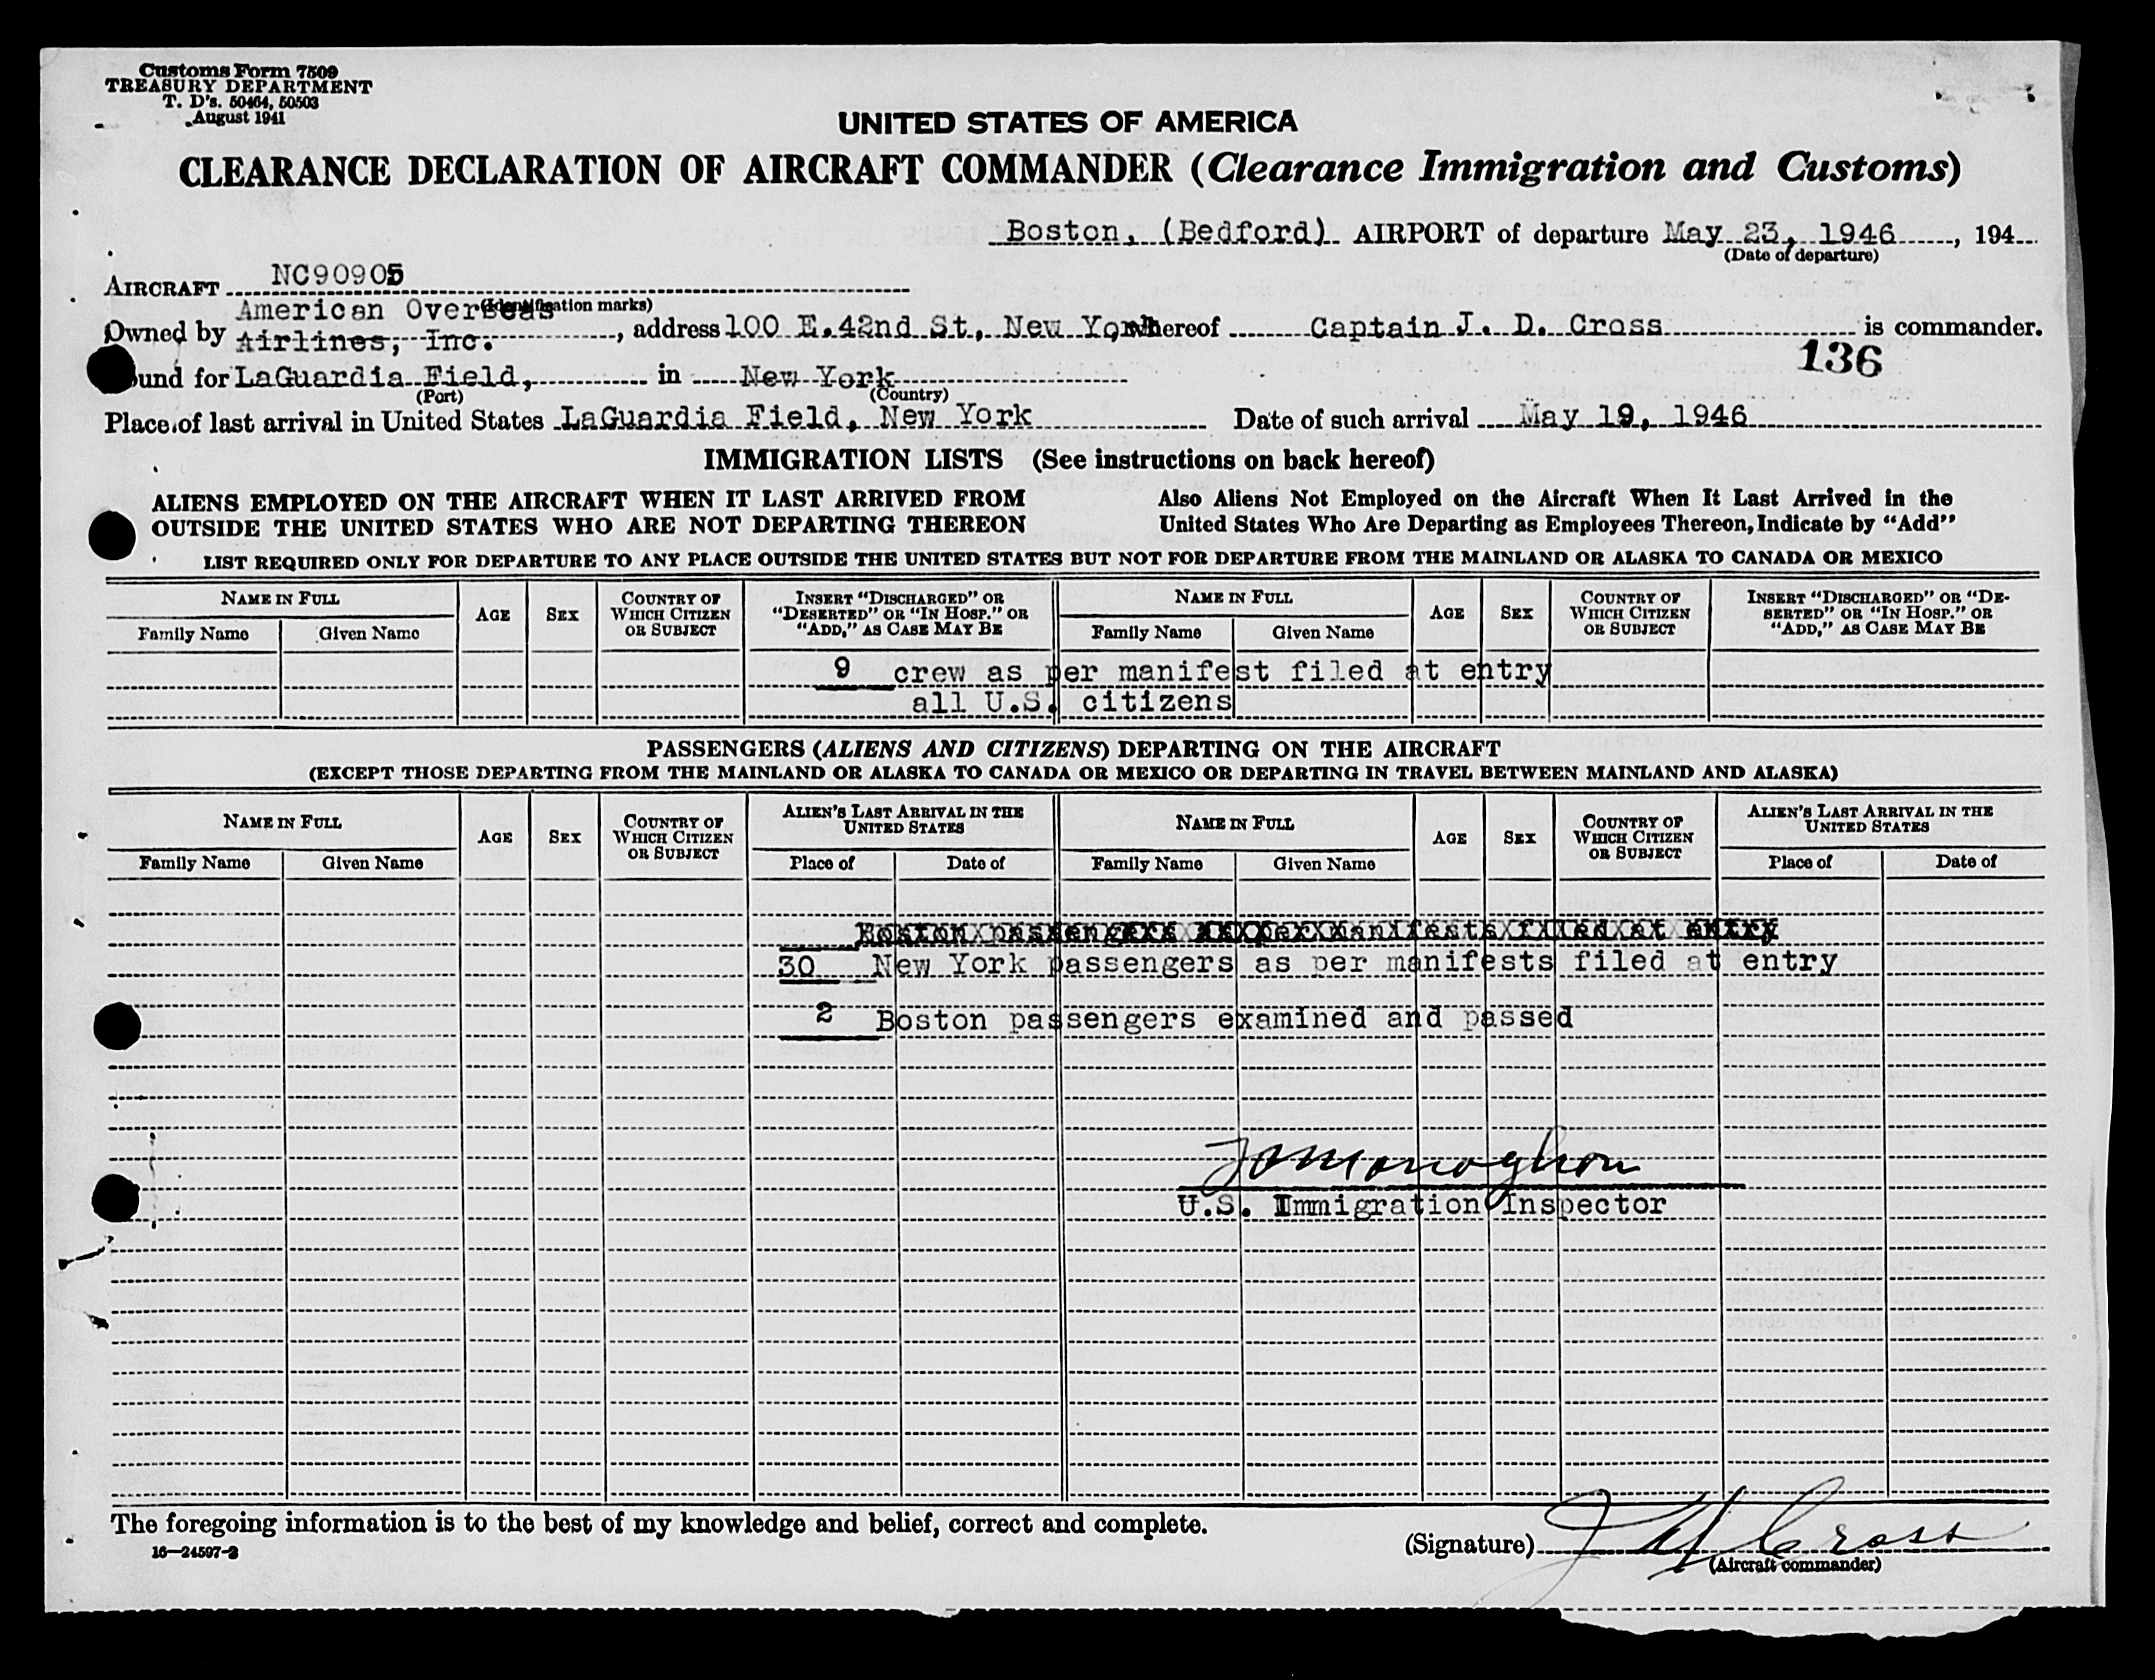 Customs Form 7509
TREASURY DEPARTMENT
T. D's. 50464, 50503
August 1941
UNITED STATES OF AMERICA
CLEARANCE DECLARATION OF AIRCRAFT COMMANDER (Clearance Immigration and Customs)
Boston, (Bedford) AIRPORT of departure May 23, 1946, 194
(Date of departure)
AIRCRAFT NC90905
(Identification marks)
Owned by American Overseas Airlines, Inc., address 100 E. 42nd St, New York whereof Captain J. D. Cross is commander.
136
und for LaGuardia Field, in New York
(Port) (Country)
Place of last arrival in United States LaGuardia Field, New York Date of such arrival May 19, 1946
IMMIGRATION LISTS (See instructions on back hereof)
ALIENS EMPLOYED ON THE AIRCRAFT WHEN IT LAST ARRIVED FROM
OUTSIDE THE UNITED STATES WHO ARE NOT DEPARTING THEREON
Also Aliens Not Employed on the Aircraft When It Last Arrived in the
United States Who Are Departing as Employees Thereon, Indicate by "Add"
LIST REQUIRED ONLY FOR DEPARTURE TO ANY PLACE OUTSIDE THE UNITED STATES BUT NOT FOR DEPARTURE FROM THE MAINLAND OR ALASKA TO CANADA OR MEXICO
NAME IN FULL
Family Name Given Name
AGE
SEX
COUNTRY OF
WHICH CITIZEN
OR SUBJECT
INSERT "DISCHARGED" OR
"DESERTED" OR "IN HOSP." OR
"ADD," AS CASE MAY BE
NAME IN FULL
Family Name Given Name
AGE
SEX
COUNTRY OF
WHICH CITIZEN
OR SUBJECT
INSERT "DISCHARGED" OR "DE-
SERTED" OR "IN HOSP." OR
"ADD," AS CASE MAY BE
9 crew as per manifest filed at entry
all U.S. citizens
PASSENGERS (ALIENS AND CITIZENS) DEPARTING ON THE AIRCRAFT
(EXCEPT THOSE DEPARTING FROM THE MAINLAND OR ALASKA TO CANADA OR MEXICO OR DEPARTING IN TRAVEL BETWEEN MAINLAND AND ALASKA)
NAME IN FULL
Family Name Given Name
AGE
SEX
COUNTRY OF
WHICH CITIZEN
OR SUBJECT
ALIEN'S LAST ARRIVAL IN THE
UNITED STATES
Place of Date of
NAME IN FULL
Family Name Given Name
AGE
SEX
COUNTRY OF
WHICH CITIZEN
OR SUBJECT
ALIEN'S LAST ARRIVAL IN THE
UNITED STATES
Place of Date of
Boston passengers as per manifests filed at entry
30 New York passengers as per manifests filed at entry
2 Boston passengers examined and passed
U.S. Immigration Inspector
The foregoing information is to the best of my knowledge and belief, correct and complete.
16—24597-2
(Signature) Cross
(Aircraft commander)